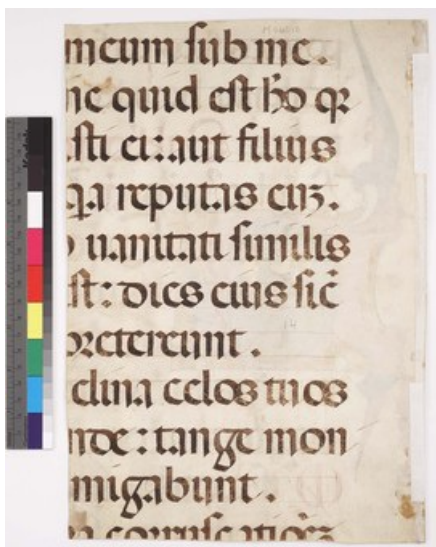 meum sub me.
ne quid est hō qꝛ
sti ei: aut filius
qa reputas euꝫ.
uanitati similis
st: dies eius sic̄
pretereunt.
clina celos tuos
nde: tange mon
migabunt.
14